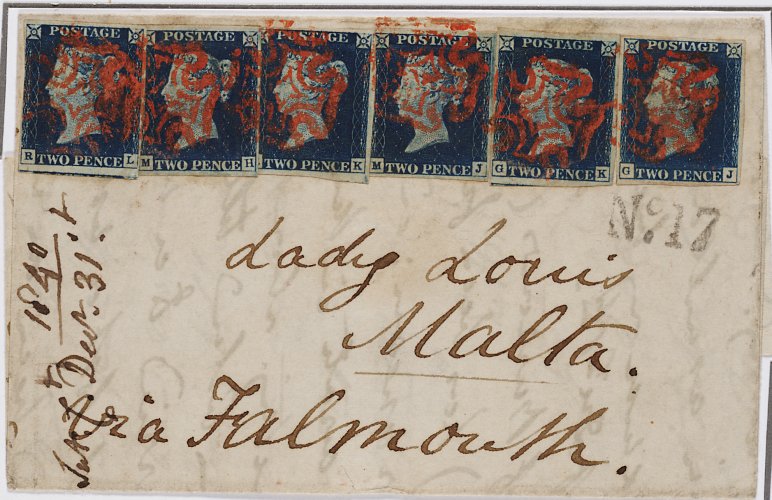 POSTAGE POSTAGE POSTAGE POSTAGE POSTAGE POSTAGE
R TWO PENCE L M TWO PENCE H TWO PENCE K M TWO PENCE J G TWO PENCE K G TWO PENCE J
No. 17
Lady Louis
Malta.
via Falmouth.
1840
Decr. 31.